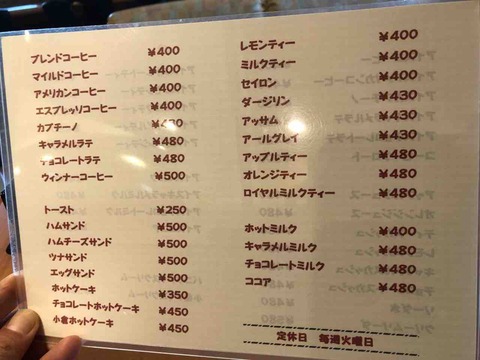 ブレンドコーヒー ¥400
マイルドコーヒー ¥400
アメリカンコーヒー ¥400
エスプレッソコーヒー ¥400
カプチーノ
キャラメルラテ ¥480
チョコレートラテ ¥480
ウィンナーコーヒー ¥500
トースト ¥250
ハムサンド ¥500
ハムチーズサンド ¥500
ツナサンド ¥500
エッグサンド ¥500
ホットケーキ ¥350
チョコレートホットケーキ ¥450
小倉ホットケーキ ¥450
レモンティー ¥400
ミルクティー ¥400
セイロン ¥400
ダージリン ¥430
アッサム ¥430
アールグレイ ¥430
アップルティー ¥480
オレンジティー ¥480
ロイヤルミルクティー ¥480
ホットミルク ¥400
キャラメルミルク ¥480
チョコレートミルク ¥480
ココア ¥480
定休日 毎週火曜日